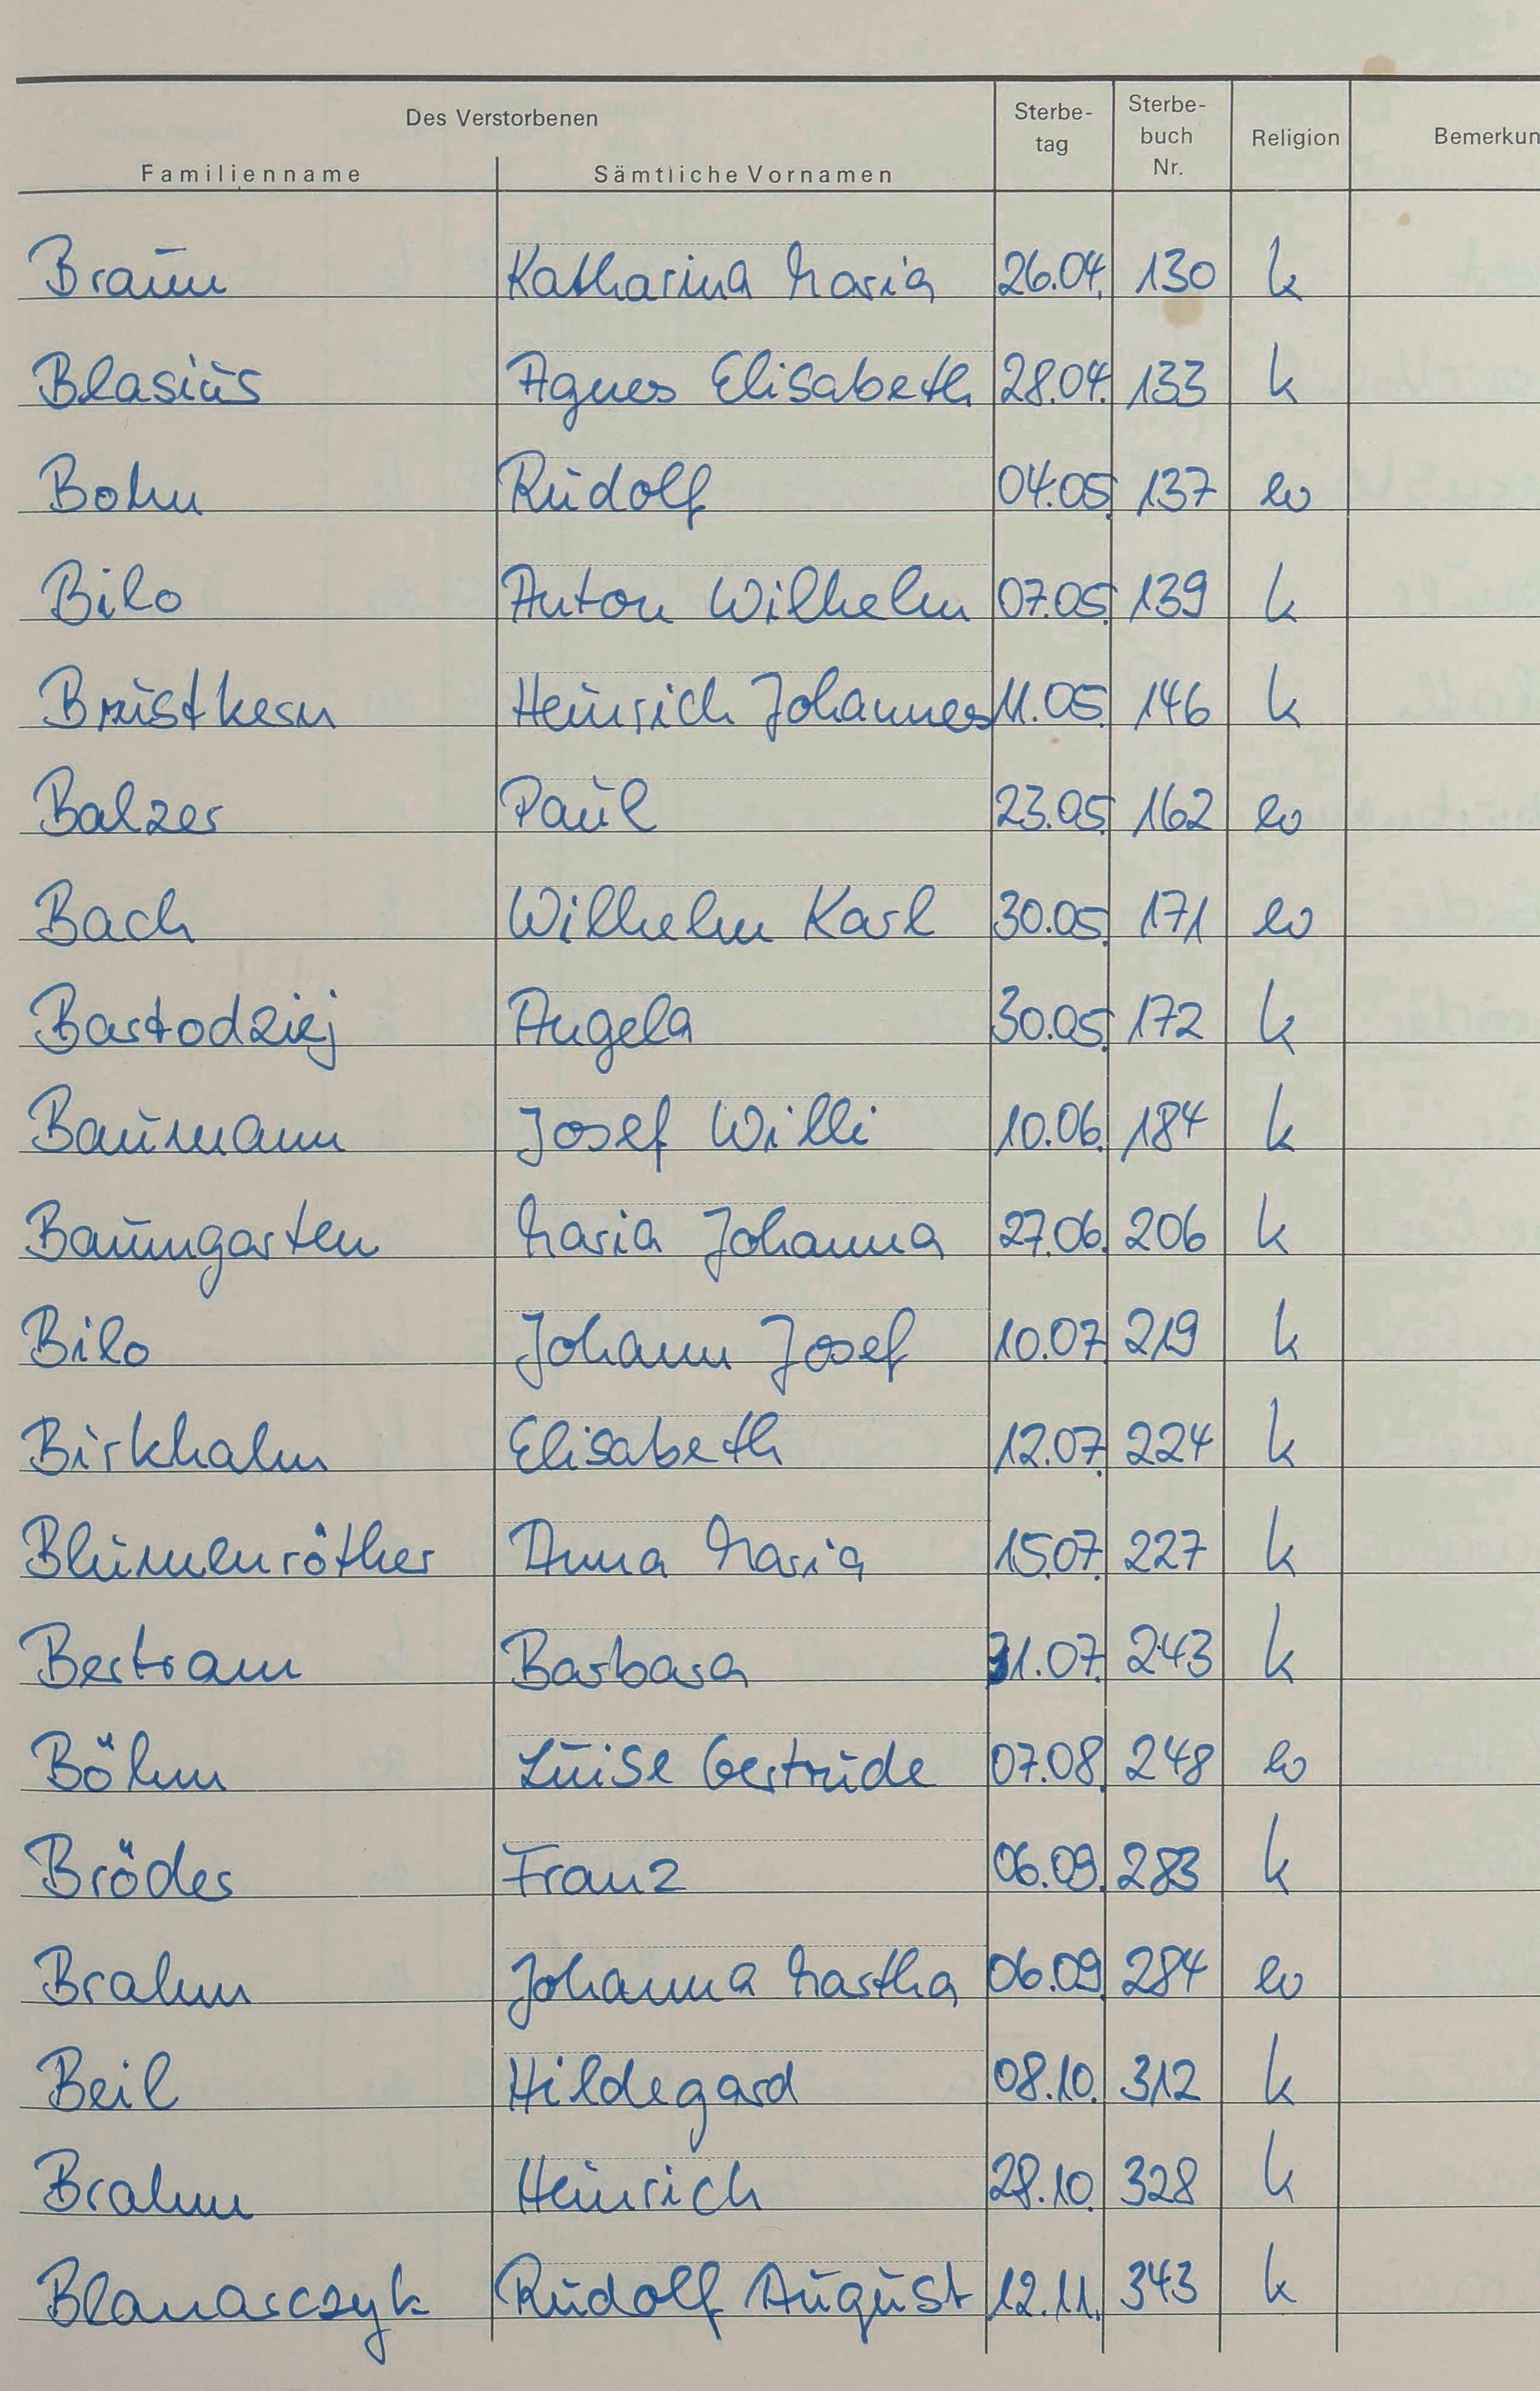 Des Verstorbenen
Familienname Sämtliche Vornamen Sterbe-tag Sterbe-buch Nr. Religion Bemerkun
Braun Katharina Maria 26.04. 130 k
Blasius Agnes Elisabeth 28.04. 133 k
Bohn Rudolf 04.05. 137 ev
Bilo Anton Wilhelm 07.05. 139 k
Brustkern Heinrich Johannes 11.05. 146 k
Balzer Paul 23.05. 162 ev
Bach Wilhelm Karl 30.05. 171 ev
Bartodziej Angela 30.05. 172 k
Baumann Josef Willi 10.06. 184 k
Baumgarten Maria Johanna 27.06. 206 k
Bilo Johann Josef 10.07. 219 k
Birkhahn Elisabeth 12.07. 224 k
Blumenröther Anna Maria 15.07. 227 k
Bertram Barbara 31.07. 243 k
Böhm Luise Gertrude 07.08. 248 ev
Brödes Franz 06.09. 283 k
Brahm Johanna Martha 06.09. 284 ev
Beil Hildegard 08.10. 312 k
Brahm Heinrich 28.10. 328 k
Blanarczyk Rudolf August 12.11. 343 k